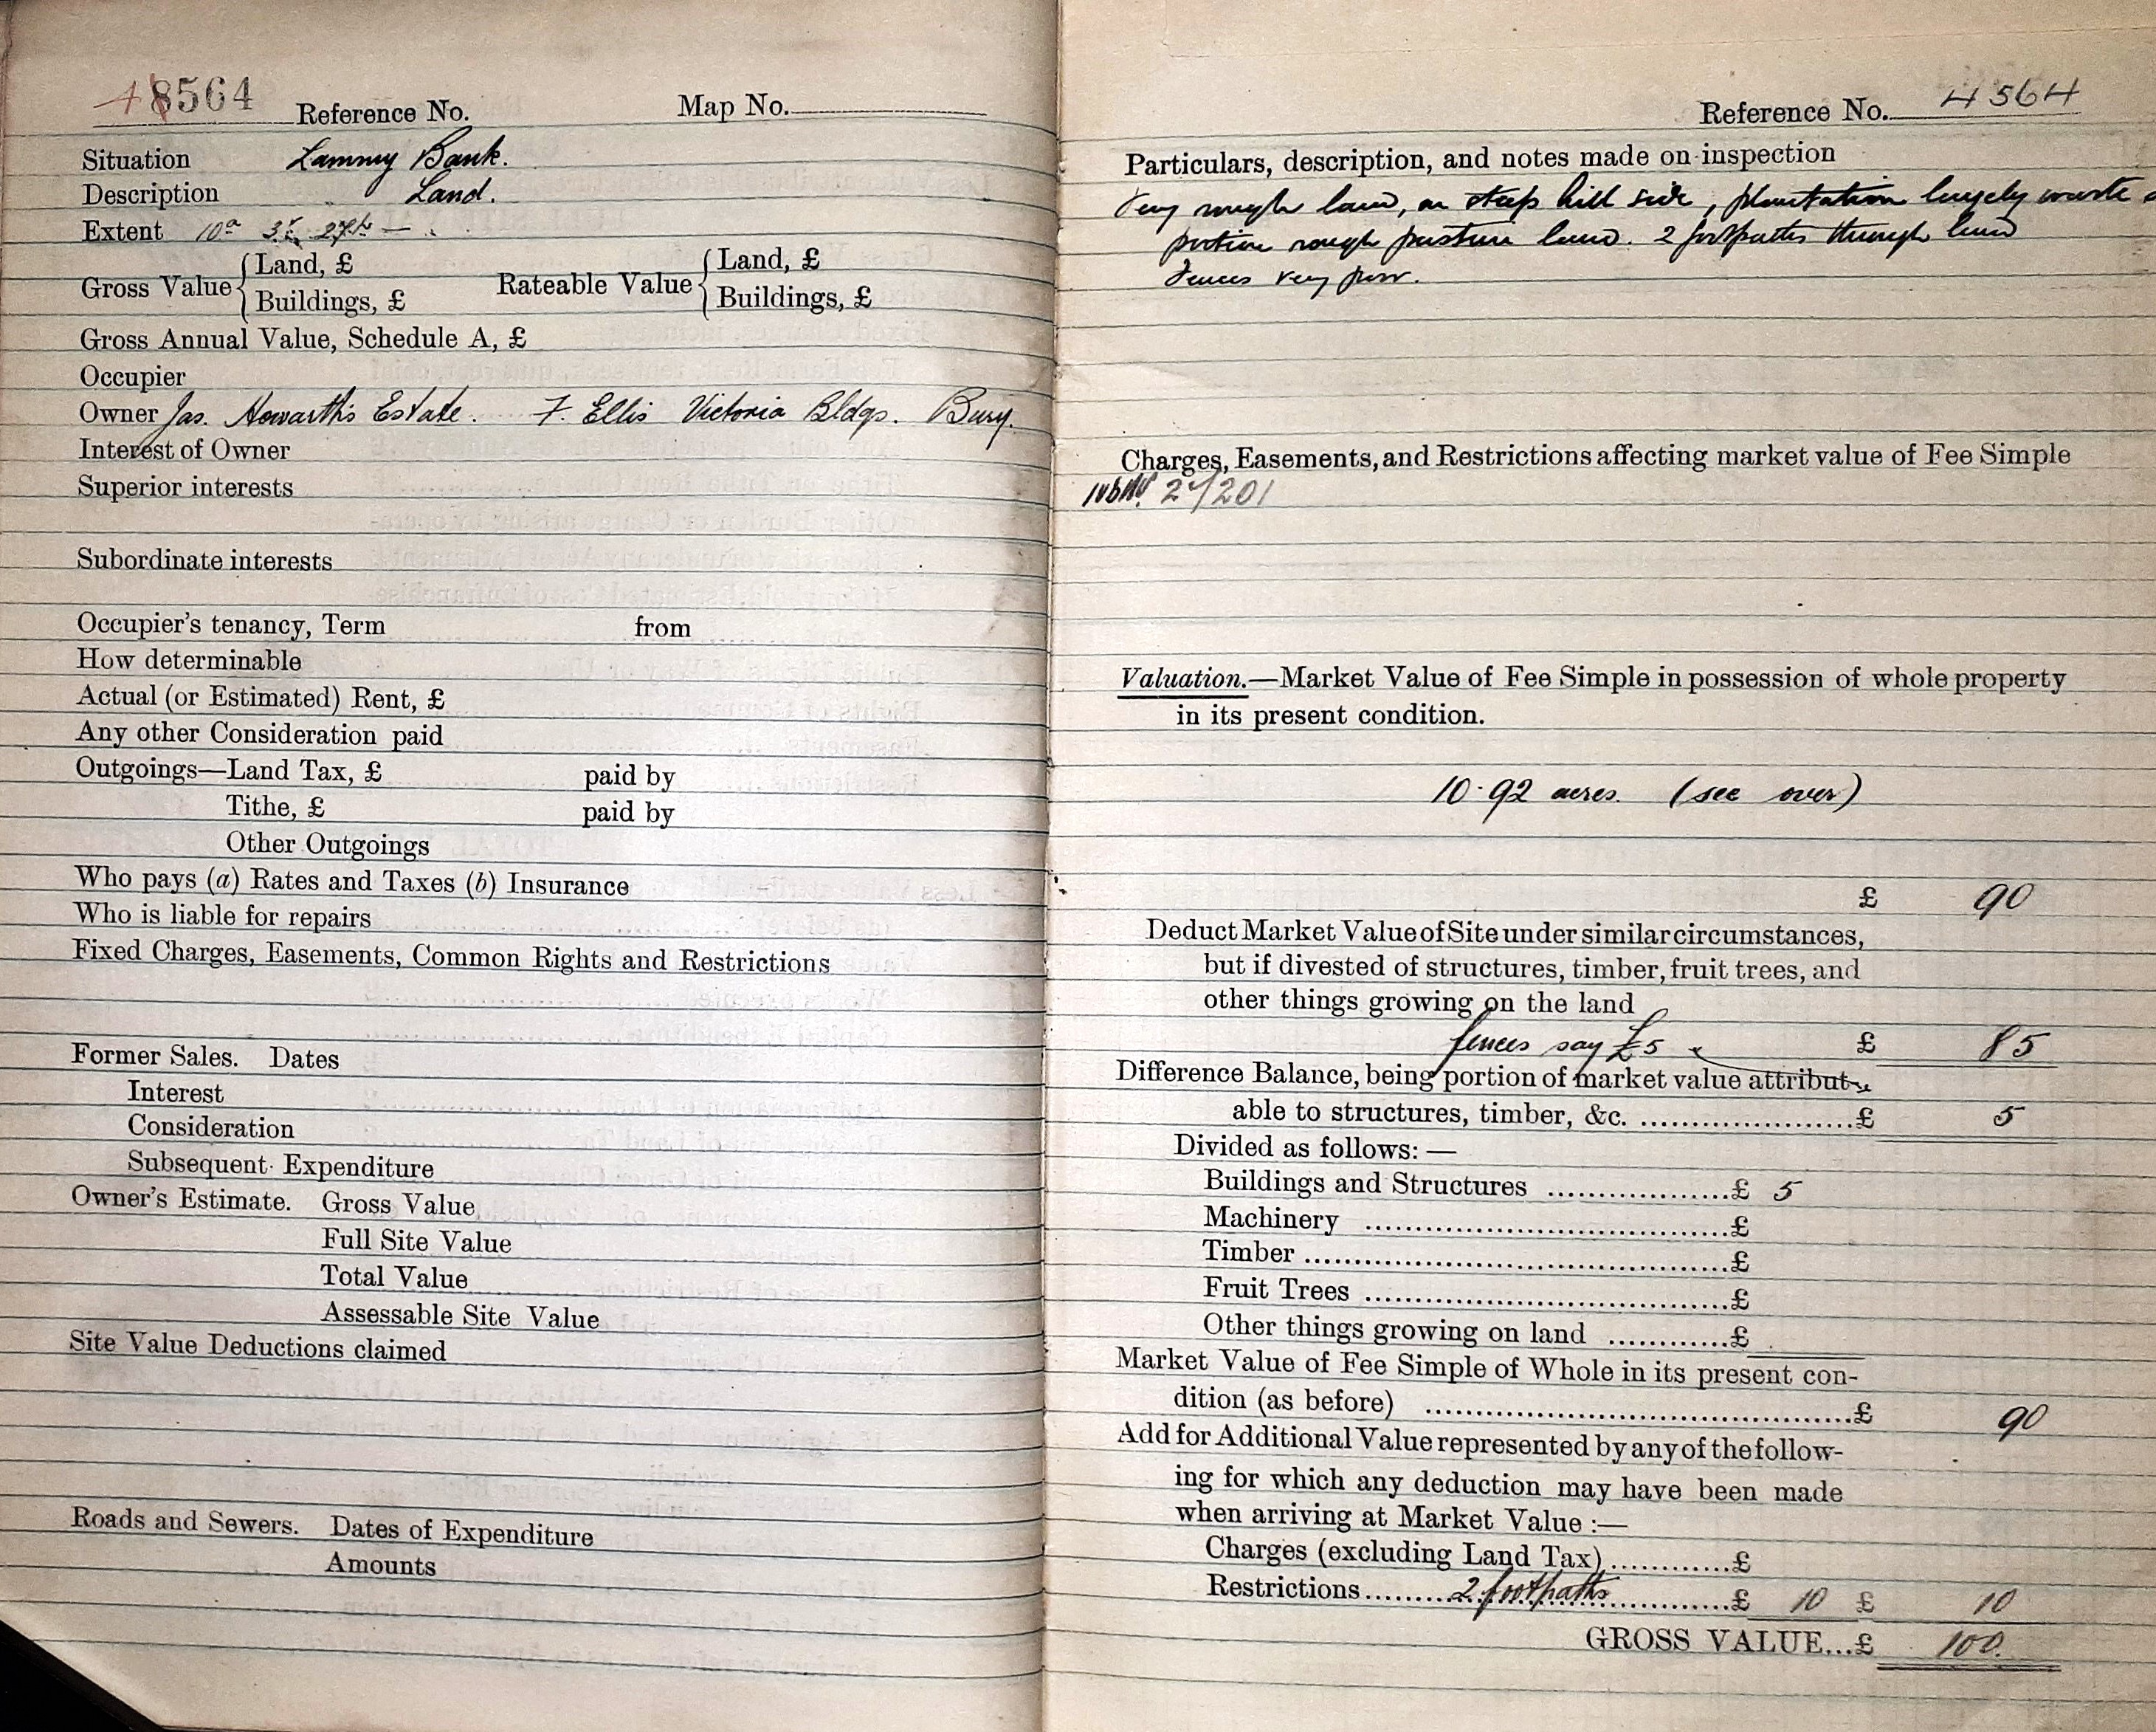 48564 Reference No. Map No.
Situation Lammy Bank.
Description Land.
Extent 10a 3r 27p —
Gross Value { Land, £ Rateable Value { Land, £
Buildings, £ Buildings, £
Gross Annual Value, Schedule A, £
Occupier
Owner Jas. Howarth's Estate. F. Ellis Victoria Bldgs. Bury.
Interest of Owner
Superior interests
Subordinate interests
Occupier's tenancy, Term from
How determinable
Actual (or Estimated) Rent, £
Any other Consideration paid
Outgoings—Land Tax, £ paid by
Tithe, £ paid by
Other Outgoings
Who pays (a) Rates and Taxes (b) Insurance
Who is liable for repairs
Fixed Charges, Easements, Common Rights and Restrictions
Former Sales. Dates
Interest
Consideration
Subsequent Expenditure
Owner's Estimate. Gross Value
Full Site Value
Total Value
Assessable Site Value
Site Value Deductions claimed
Roads and Sewers. Dates of Expenditure
Amounts
Reference No. 4564
Particulars, description, and notes made on inspection
Very rough land, on steep hill side, plantation largely waste
portion rough pasture land. 2 footpaths through land
Fences very poor.
Charges, Easements, and Restrictions affecting market value of Fee Simple
2/201
Valuation.—Market Value of Fee Simple in possession of whole property
in its present condition.
10.92 acres. (see over)
£ 90
Deduct Market Value of Site under similar circumstances,
but if divested of structures, timber, fruit trees, and
other things growing on the land
fences say £5 £ 85
Difference Balance, being portion of market value attribut-
able to structures, timber, &c. ....................£ 5
Divided as follows:—
Buildings and Structures ..................£ 5
Machinery ....................................£
Timber ............................................£
Fruit Trees ....................................£
Other things growing on land ...........£
Market Value of Fee Simple of Whole in its present con-
dition (as before) ..........................................£ 90
Add for Additional Value represented by any of the follow-
ing for which any deduction may have been made
when arriving at Market Value :—
Charges (excluding Land Tax) ............£
Restrictions ........ 2 footpaths ............£ 10 £ 10
GROSS VALUE...£ 100.